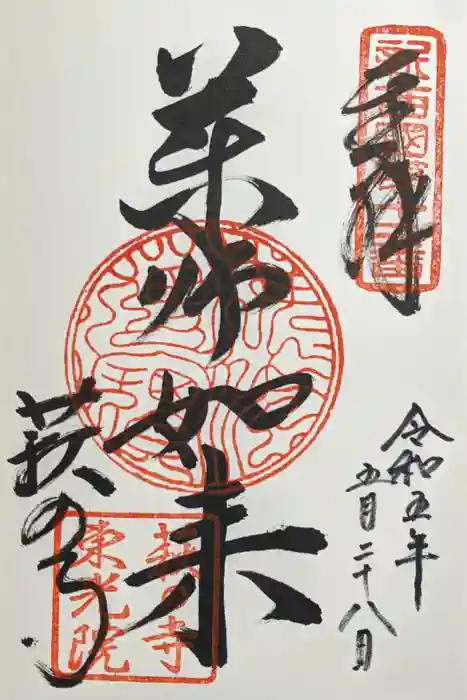 奉拝
薬師如来
萩の寺
令和五年
五月二十八日
萩の寺
東光院